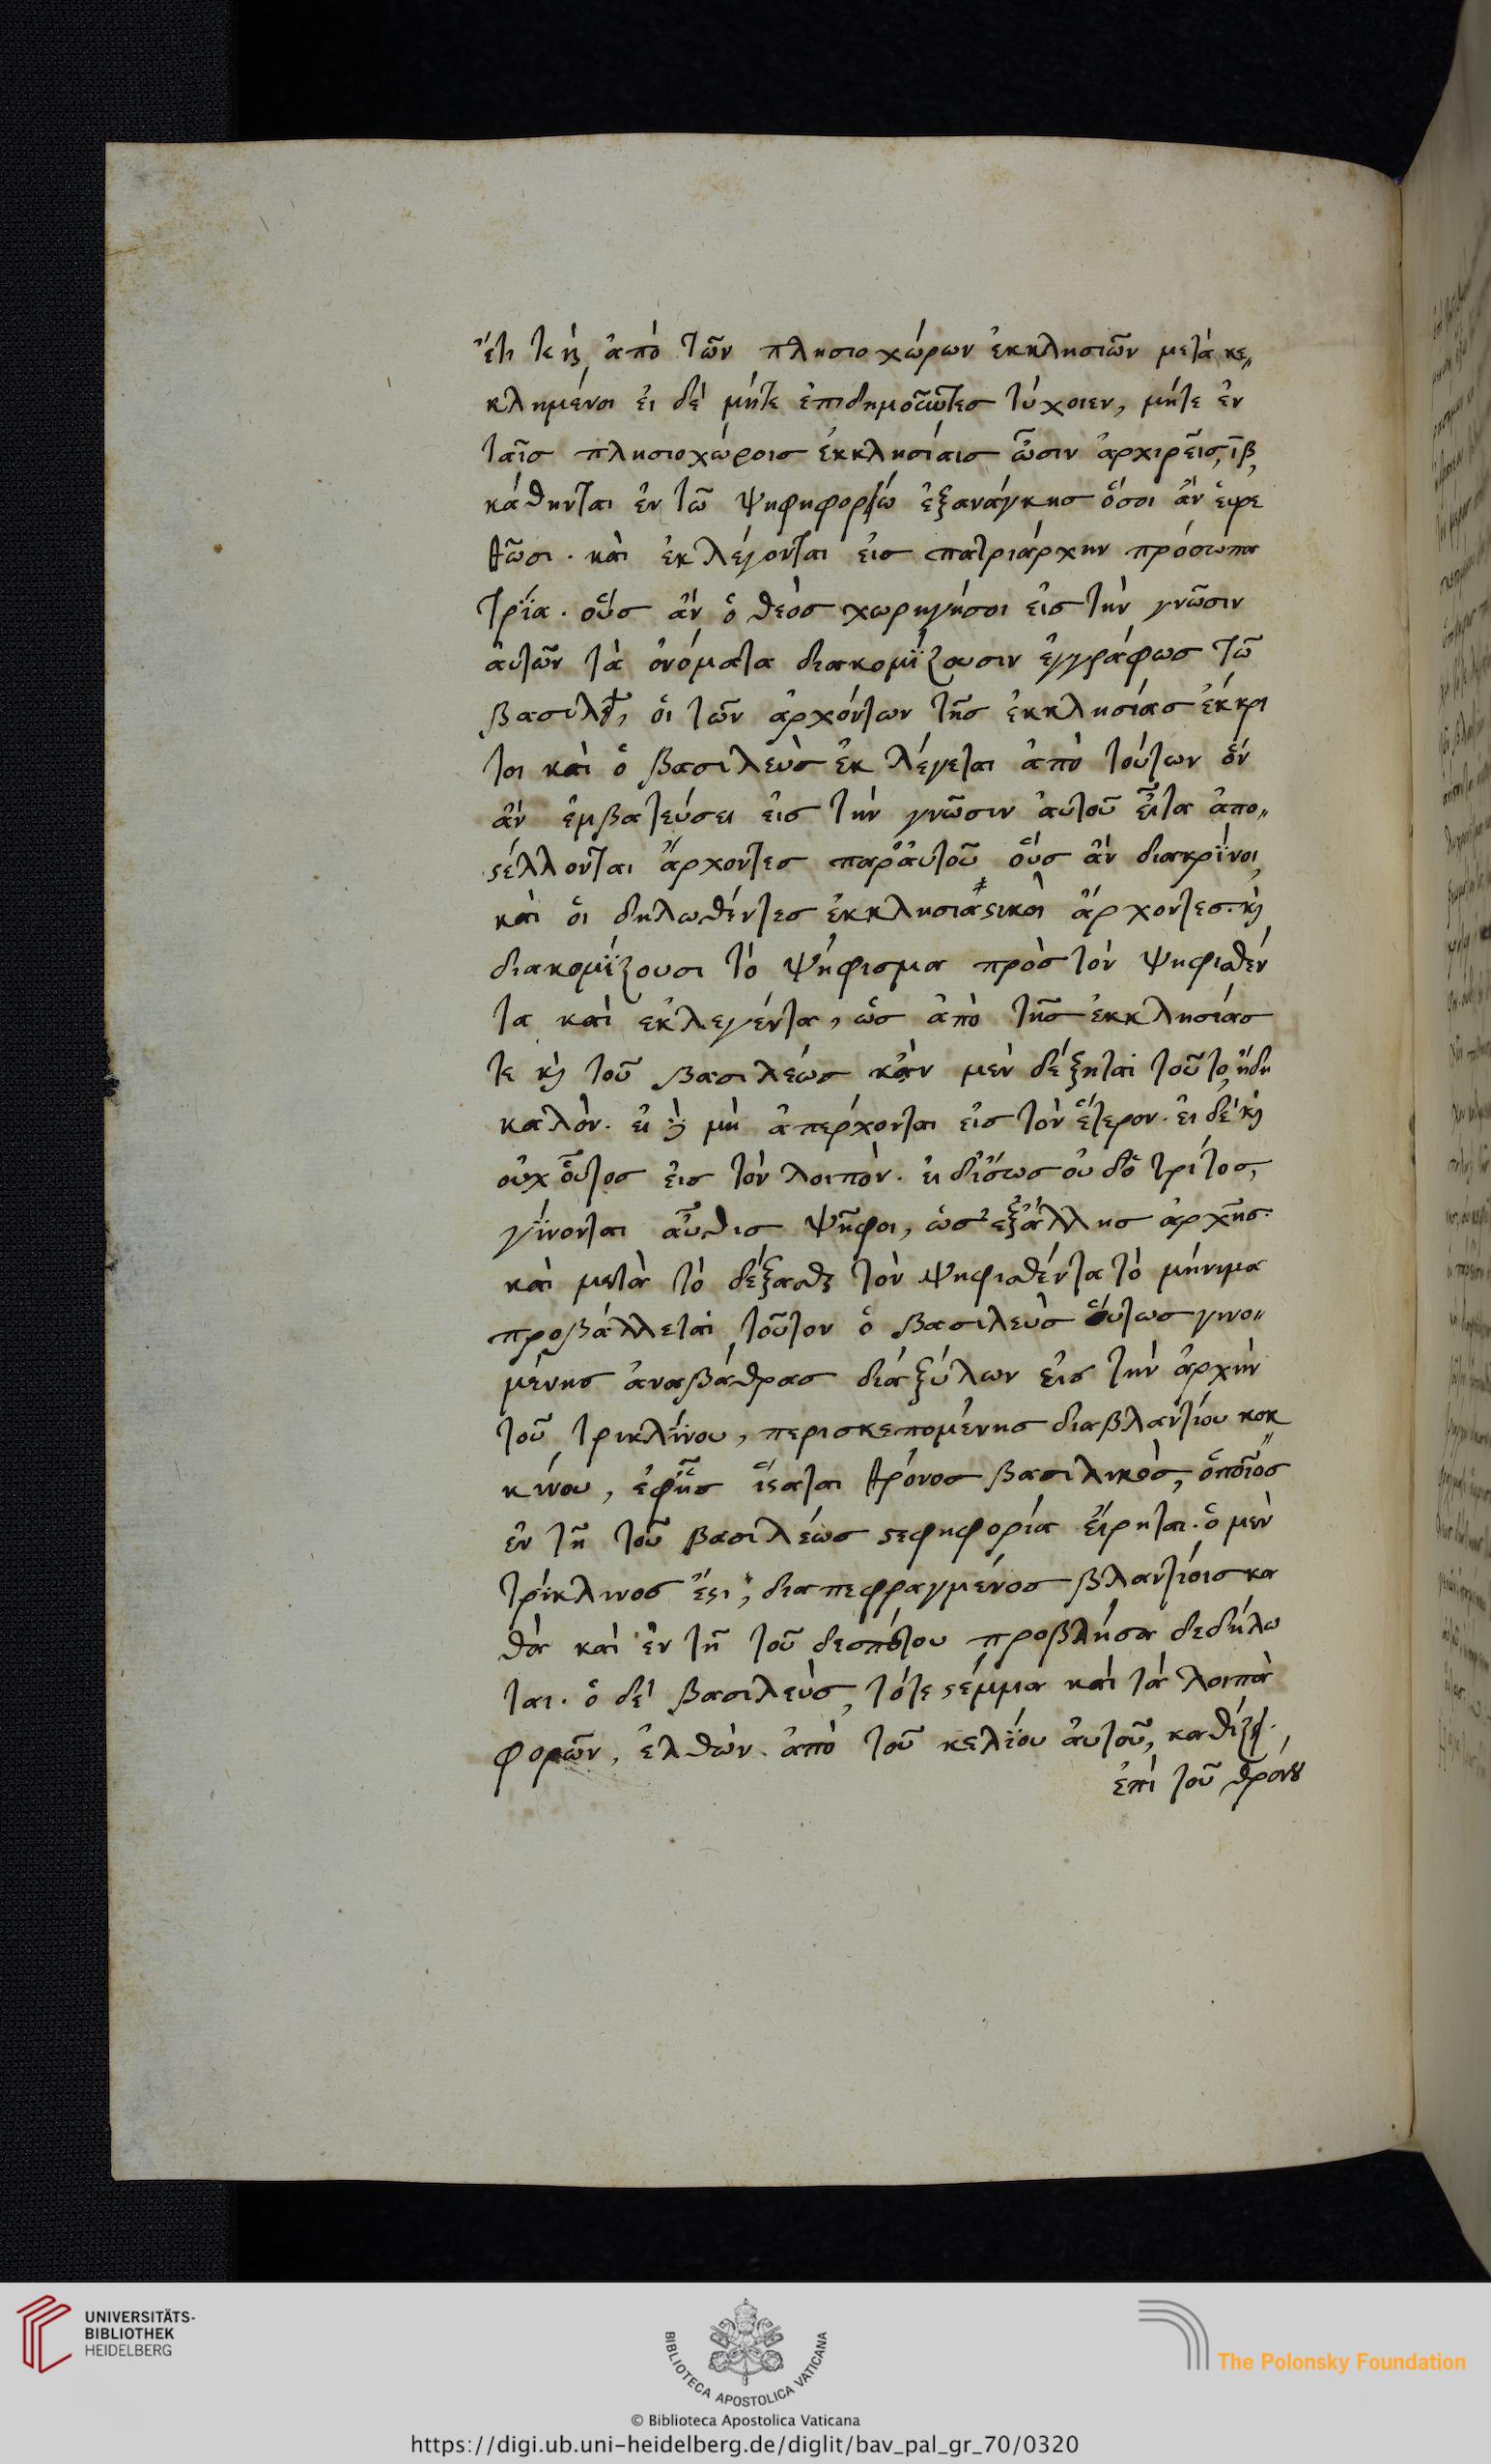 ἔτι τὲ κὴ ἀπὸ τῶν πλησιοχώρων ἐκκλησιῶν μετὰ κε„
κλημένοι εἰ δὲ μήτε ἐπιδημοῦντες τύχοιεν, μήτε ἐν
ταῖς πλησιοχώροις ἐκκλησίαις ὦσιν ἀρχιρεῖς, ϊβ,
κάθηνται ἐν τῶ ψηφηφορίω ἐξανάγκης ὅσοι ἂν εὑρε
θῶσι. καὶ ἐκλέγονται εἰς πατριάρχην πρόσωπα
τρία. οὓς ἂν ὁ θεὸς χωρηγήσοι εἰς τὴν γνῶσιν
αὐτῶν τὰ ὀνόματα διακομΐζουσιν ἐγγράφως τῶ
βασιλεῖ, οἱ τῶν ἀρχόντων τῆς ἐκκλησίας ἔκκρι
τοι καὶ ὁ βασιλεὺς ἐκ λέγεται ἀπὸ τούτων ὃν
ἂν ἐμβατεύσει εἰς τὴν γνῶσιν αὐτοῦ εἶτα ἀπο„
στέλλονται ἄρχοντες παρ' αὐτοῦ οὓς ἂν διακρΐνοι,
καὶ οἱ δηλωθέντες ἐκκλησιαστικοὶ ἄρχοντες. κὴ
διακομΐζουσι τὸ ψήφισμα πρὸς τὸν ψηφισθέν
τα καὶ εκλεγέντα, ὡς ἀπὸ τῆς ἐκκλησίας
τε κὴ τοῦ βασιλέως κἂν μὲν δέξηται τοῦτο, ἤδη
καλόν. εἰ δὲ μὴ ἀπερχονται εἰς τὸν ἕτερον. εἰ δὲ κὴ
οὐχ οὗτος εἰς τὸν λοιπόν. εἰ δ' ἴσως οὐ δ' ὁ τρίτος,
γΐνονται αὖθις ψῆφοι, ὡς ἐξ ἄλλης ἀρχῆς.
καὶ μετὰ τὸ δέξασθαι τὸν ψηφισθέντα τὸ μήνιμα
προβάλλεται τοῦτον ὁ βασιλεὺς οὕτως γινο„
μένης ἀναβάθρας διὰ ξύλων εἰς τὴν ἀρχὴν
τοῦ τρικλΐνου, περισκεπομένης διαβλαντίου κοκ
κίνου, ἐφ ἧς ἵσταται θρόνος βασιλικὸς, ὁποῖος
ἐν τῆ τοῦ βασιλέως στεφηφορία εἴρηται. ὁ μὲν
τρΐκλινος ἔστι, διαπεφραγμένος βλαντίοις κα
θὰ καὶ ἐν τῆ τοῦ δεσπότου προβλήσα δεδήλω
ται. ὁ δὲ βασιλεὺς, τότε στέμμα καὶ τὰ λοιπὰ
φορῶν, ἐλθὼν. ἀπὸ τοῦ κελΐου αὐτοῦ, καθίζει.,
ἐπὶ τοῦ θρόνου
UNIVERSITÄTS-
BIBLIOTHEK
HEIDELBERG
BIBLIOTECA APOSTOLICA VATICANA
The Polonsky Foundation
© Biblioteca Apostolica Vaticana
https://digi.ub.uni-heidelberg.de/diglit/bav_pal_gr_70/0320